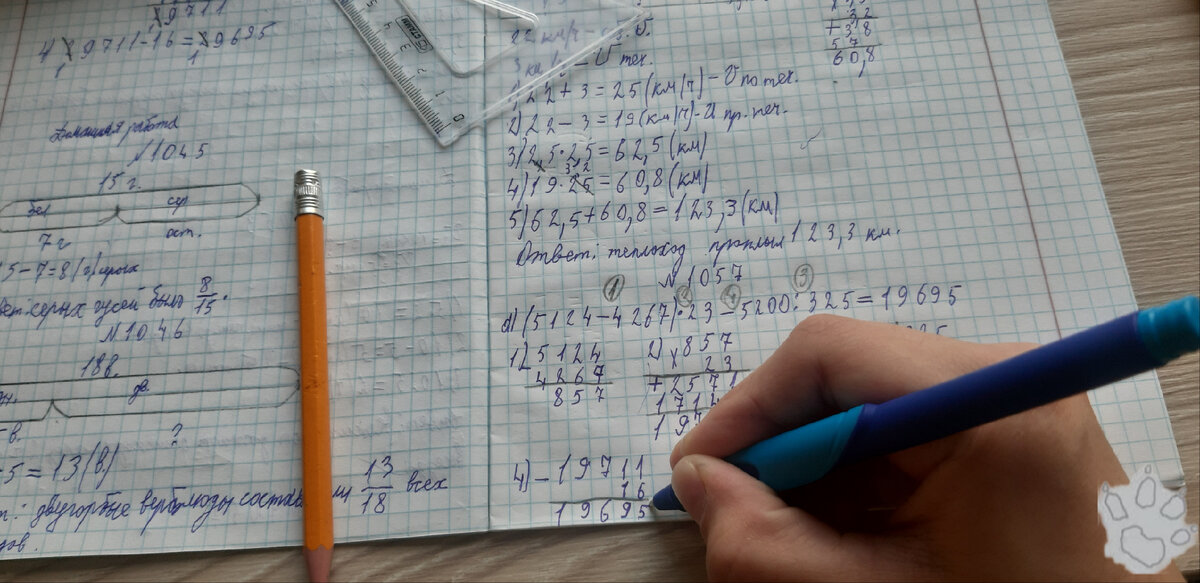 19711
4) 19711-16=19695
Домашняя работа
№1045
15 г.
бел сер
7 г ост.
15-7=8(г) серых
серых гусей было 8/15.
№1046
18 в.
дв.
?
-5=13(в)
двугорбые верблюды 13/18 всех
32
+ 38
57
60,8
22 км/ч
3 км/ч теч.
1) 22+3=25(км/ч)-v по теч.
2) 22-3=19(км/ч)-v пр. теч.
3) 25·2,5=62,5(км)
4) 19·3,2=60,8(км)
5) 62,5+60,8=123,3(км)
Ответ: теплоход проплыл 123,3 км.
№1057
1 2 4 3
а) (5124-4267)·23-5200:325=19695
1) 5124
4267
857
2) ×857
23
+2571
1714
197
4) -19711
16
19695